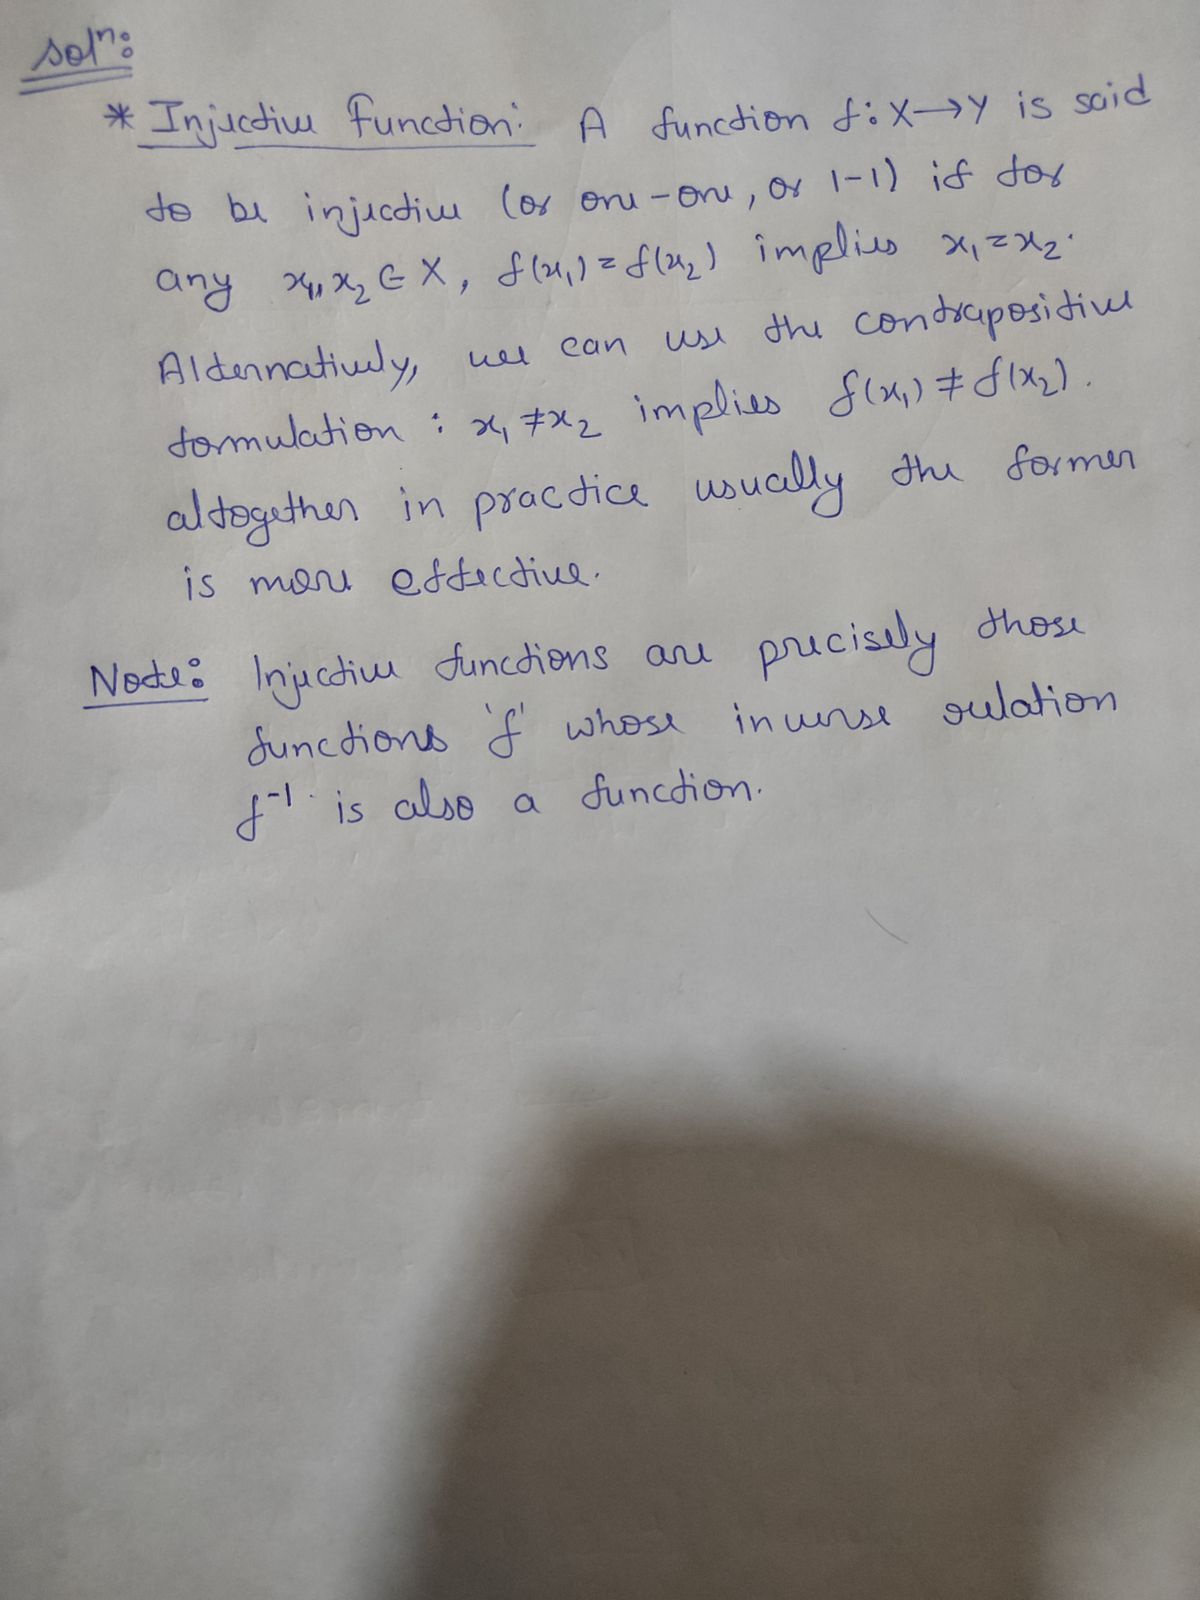 Solⁿ:
* Injective Function: A function f: X→Y is said
to be injective (or one-one, or 1-1) if for
any x₁, x₂ ∈ X, f(x₁) = f(x₂) implies x₁ = x₂.
Alternatively, we can use the contrapositive
formulation : x₁ ≠ x₂ implies f(x₁) ≠ f(x₂).
altogether in practice usually the former
is more effective.
Note: Injective functions are precisely those
functions 'f' whose inverse relation
f⁻¹ is also a function.